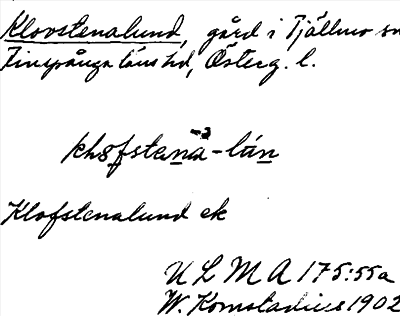 Klovstenalund, gård i Tjällmo sn
Finspånga läns hd, Österg. l.
klåfstena-lún
Klofstenalund ek
ULMA 175:55a
W. Komstadius 1902